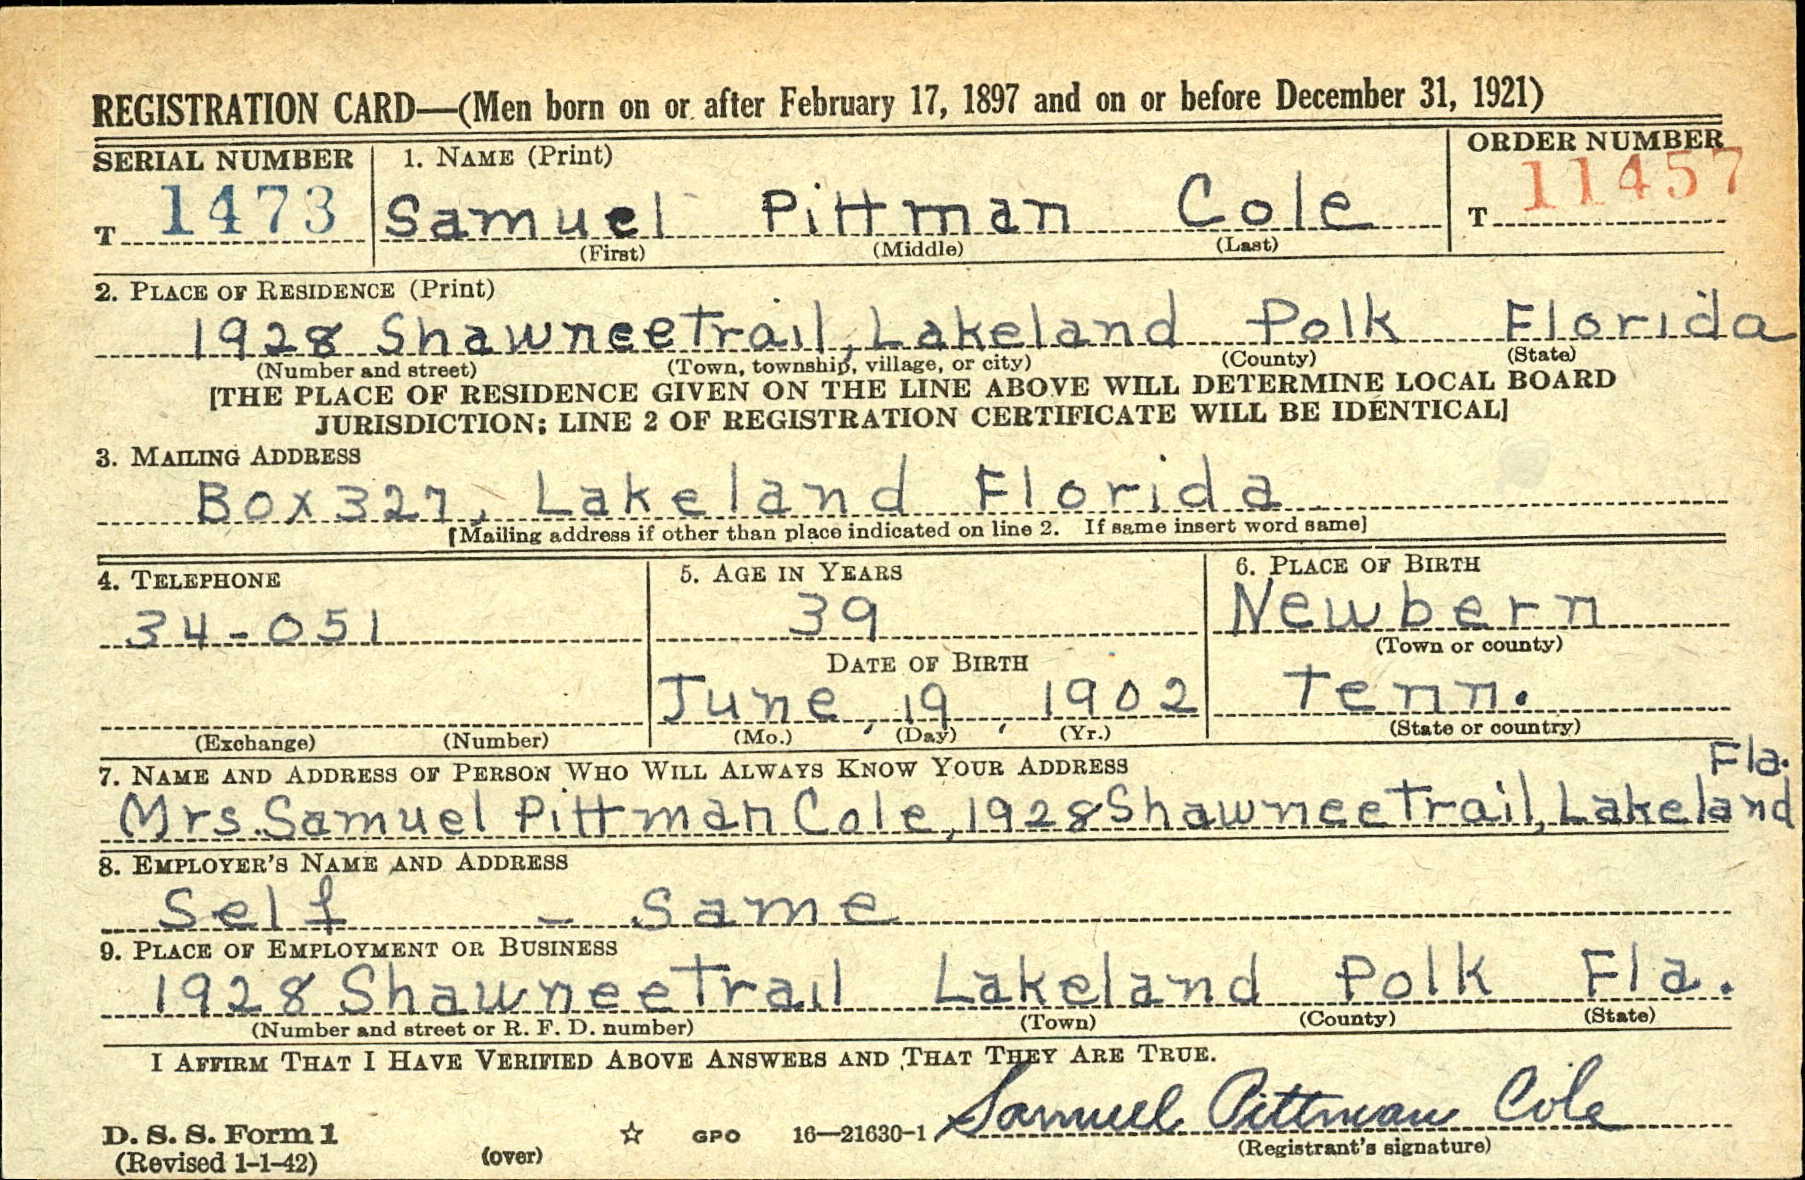 REGISTRATION CARD—(Men born on or after February 17, 1897 and on or before December 31, 1921)
SERIAL NUMBER
1. NAME (Print)
ORDER NUMBER
T 1473
Samuel Pittman Cole
T 11457
(First) (Middle) (Last)
2. PLACE OF RESIDENCE (Print)
1928 Shawnee Trail, Lakeland Polk Florida
(Number and street) (Town, township, village, or city) (County) (State)
[THE PLACE OF RESIDENCE GIVEN ON THE LINE ABOVE WILL DETERMINE LOCAL BOARD
JURISDICTION; LINE 2 OF REGISTRATION CERTIFICATE WILL BE IDENTICAL]
3. MAILING ADDRESS
Box 327, Lakeland Florida
[Mailing address if other than place indicated on line 2. If same insert word same]
4. TELEPHONE
34-051
(Exchange) (Number)
5. AGE IN YEARS
39
DATE OF BIRTH
June, 19, 1902
(Mo.) (Day) (Yr.)
6. PLACE OF BIRTH
Newbern
(Town or county)
Tenn.
(State or country)
7. NAME AND ADDRESS OF PERSON WHO WILL ALWAYS KNOW YOUR ADDRESS
Fla.
Mrs. Samuel Pittman Cole, 1928 Shawnee Trail, Lakeland
8. EMPLOYER'S NAME AND ADDRESS
Self - Same
9. PLACE OF EMPLOYMENT OR BUSINESS
1928 Shawnee Trail Lakeland Polk Fla.
(Number and street or R. F. D. number) (Town) (County) (State)
I AFFIRM THAT I HAVE VERIFIED ABOVE ANSWERS AND THAT THEY ARE TRUE.
Samuel Pittman Cole
(Registrant's signature)
D. S. S. Form 1
(Revised 1-1-42)
(over)
☆ GPO 16—21630-1